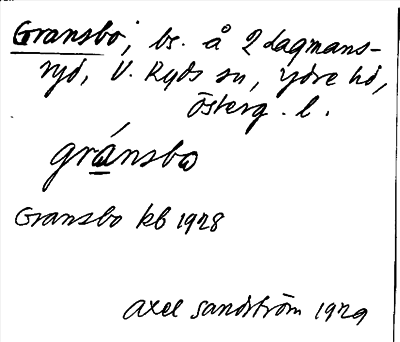 Gransbo, bs. å 2 dagmans-
ryd, V. Ryds sn, Ydre hd,
Österg. l.
gránsbo
Gransbo kb 1928
Axel Sandström 1929